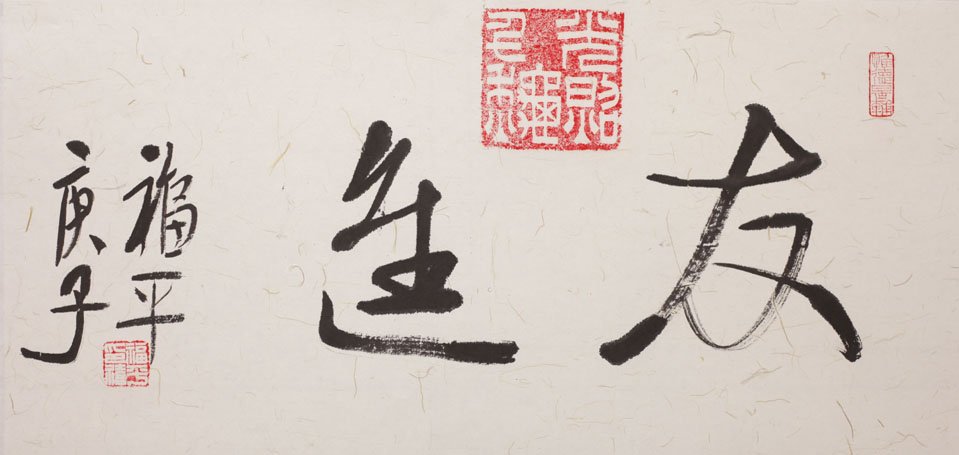 友進
福平
庚子